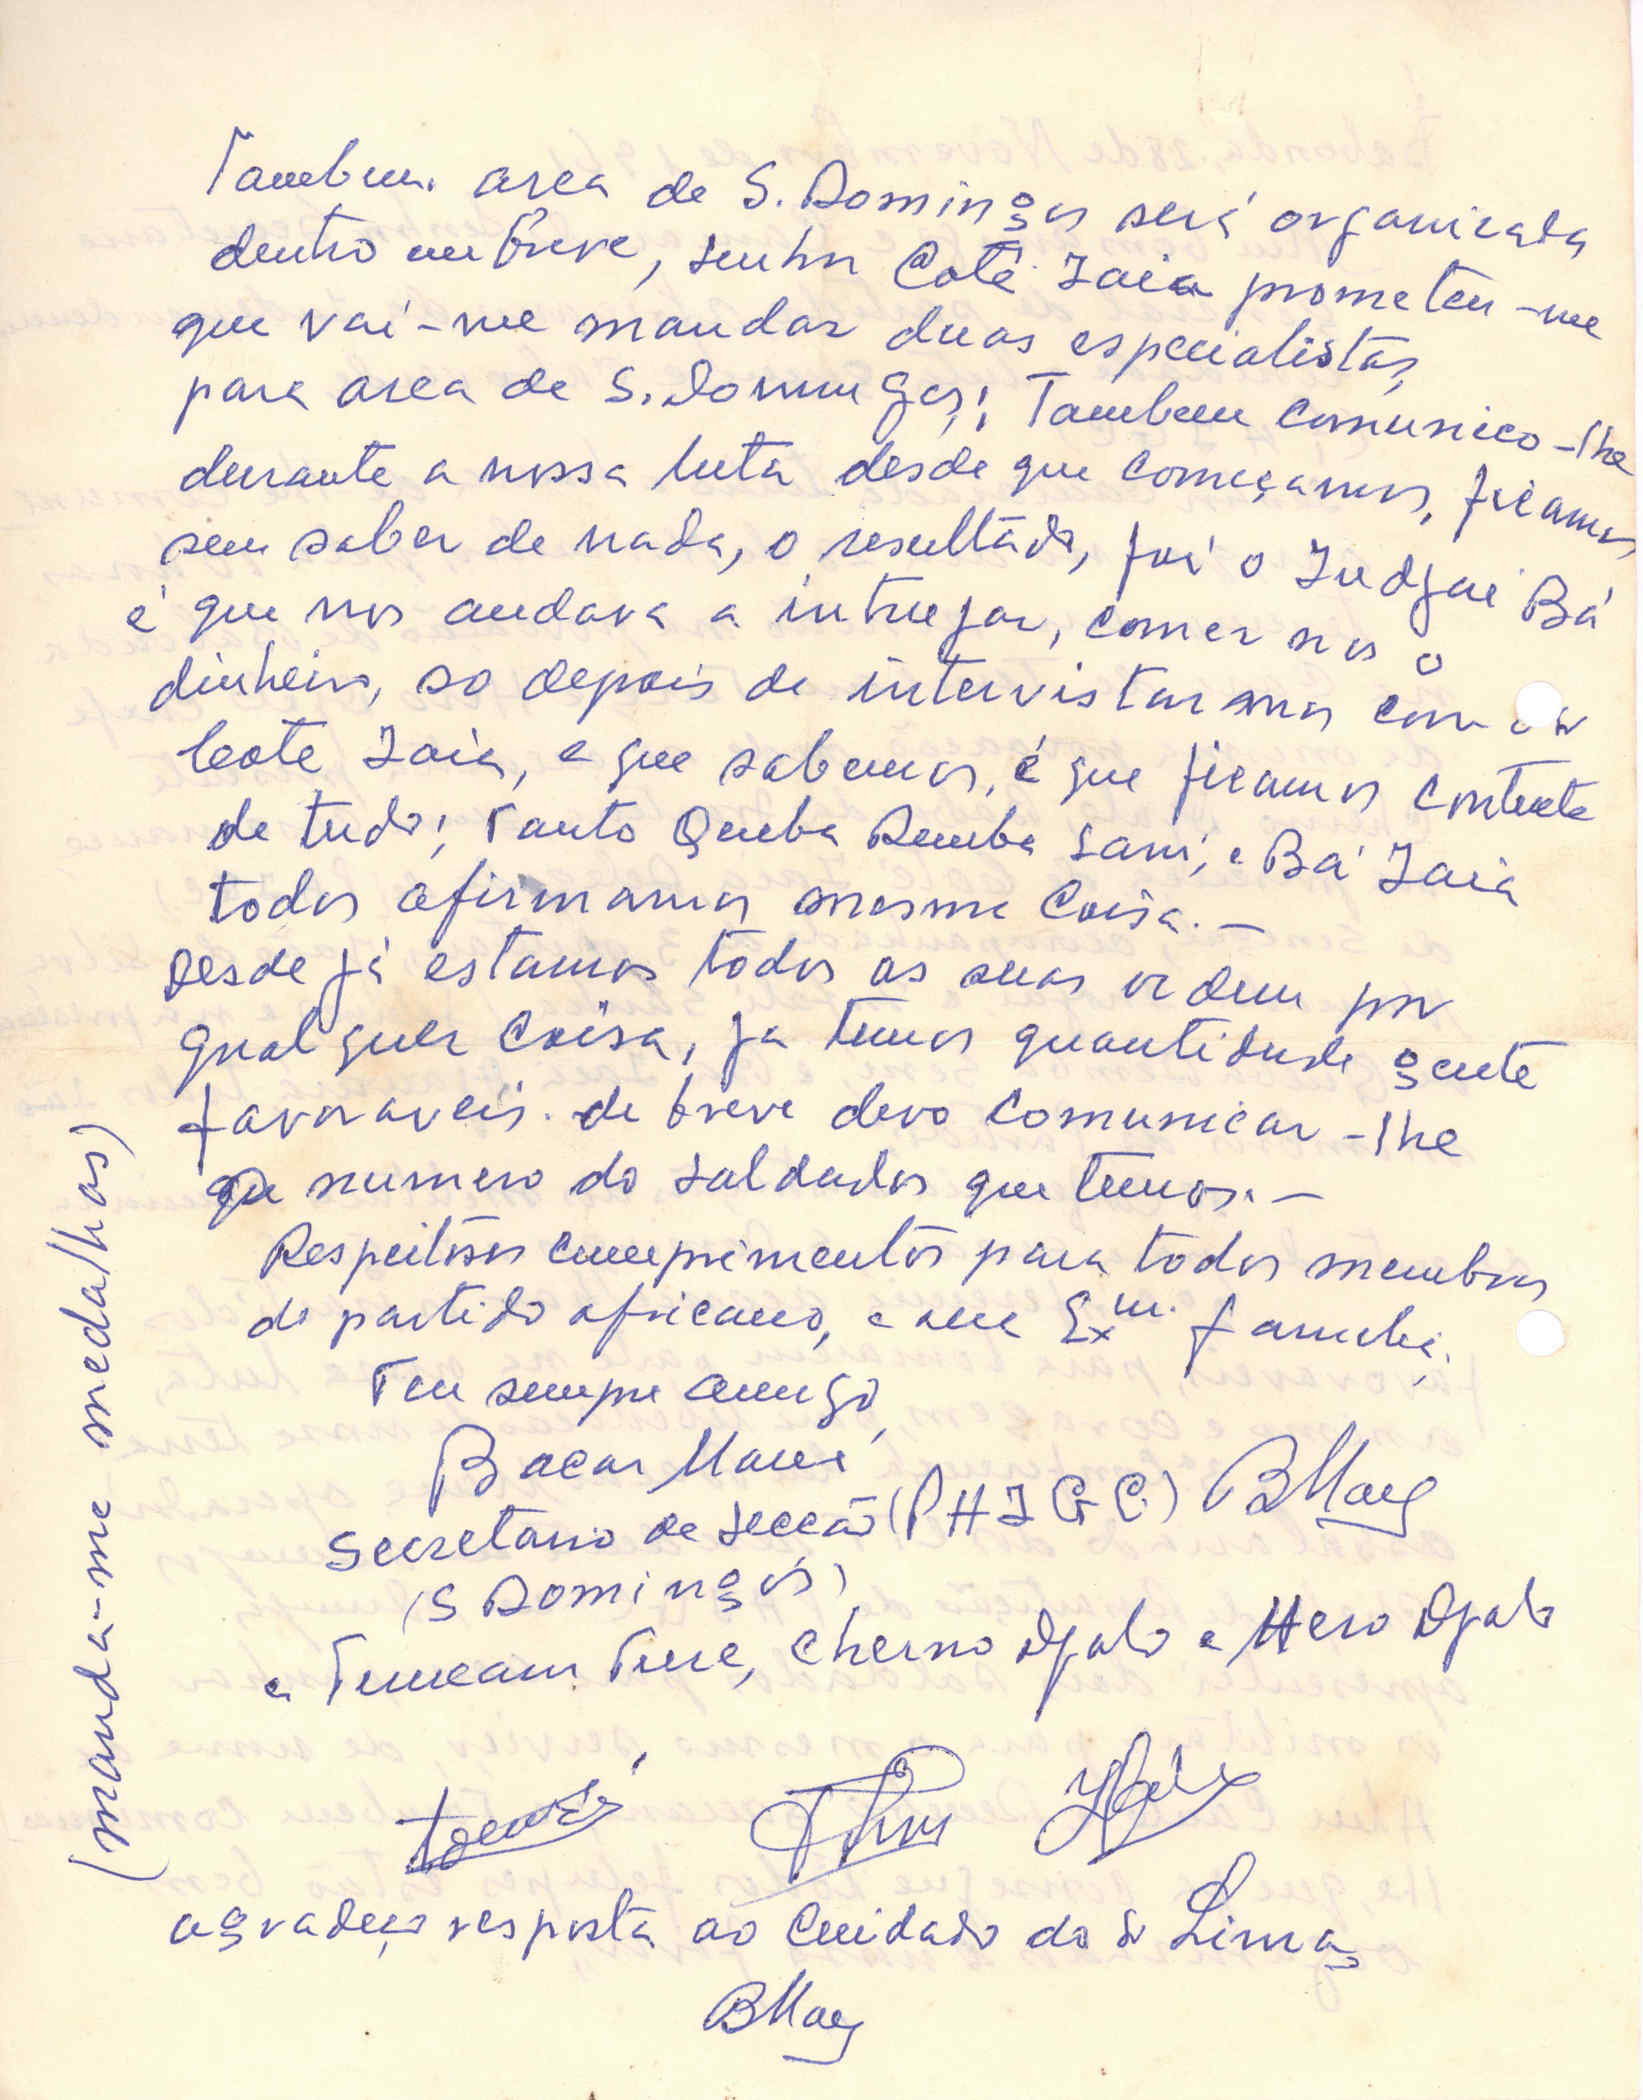 Tambem area de S. Domingos será organizada
dentro em breve, senhor Coté Zaia prometeu-me
que vai-me mandar duas especialistas
para area de S. Domingos; Tambem comunico-lhe
durante a nossa luta desde que começamos, ficamos
sem saber de nada, o resultado, foi o Indjai Bá
é que nos andava a intrujar, comer nos o
dinheiro, so depois de intervistarmos com
Cote Zaia, e que sabemos, é que ficamos contente
de tudo; Tanto Queba Demba Sani, e Bá Zaia
todos afirmamos mesma coisa.—
Desde já estamos todos as suas ordem por
qual quer coisa, ja temos quantidade gente
favoraveis. de breve devo comunicar-lhe
numero do saldados que temos.—
Respeitosos cumprimentos para todos membros
do partido africano, e sua Exm. familia.
Teu sempre amigo
Bacar Mané
Secretario de secção (PAIGC) BMany
(S Domingos)
e Tumeam Ture, Cherno Djalo e Hero Djalo
agradeço resposta ao cuidado do Sr Lima
BMany
(manda-me medalhas)